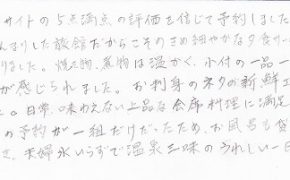 サイトの5点満点の評価を信じて予約しました
んまりした旅館だからこそのきめ細やかな夕食サー
りました。焼き物、煮物は温かく、小付の一品一
が感じられました。お刺身のネタの新鮮さ
た。日常、味わえない上品な会席料理に満足
の予約が一組だけだったため、お風呂も貸
き、夫婦水いらずで温泉三昧のうれしい一日